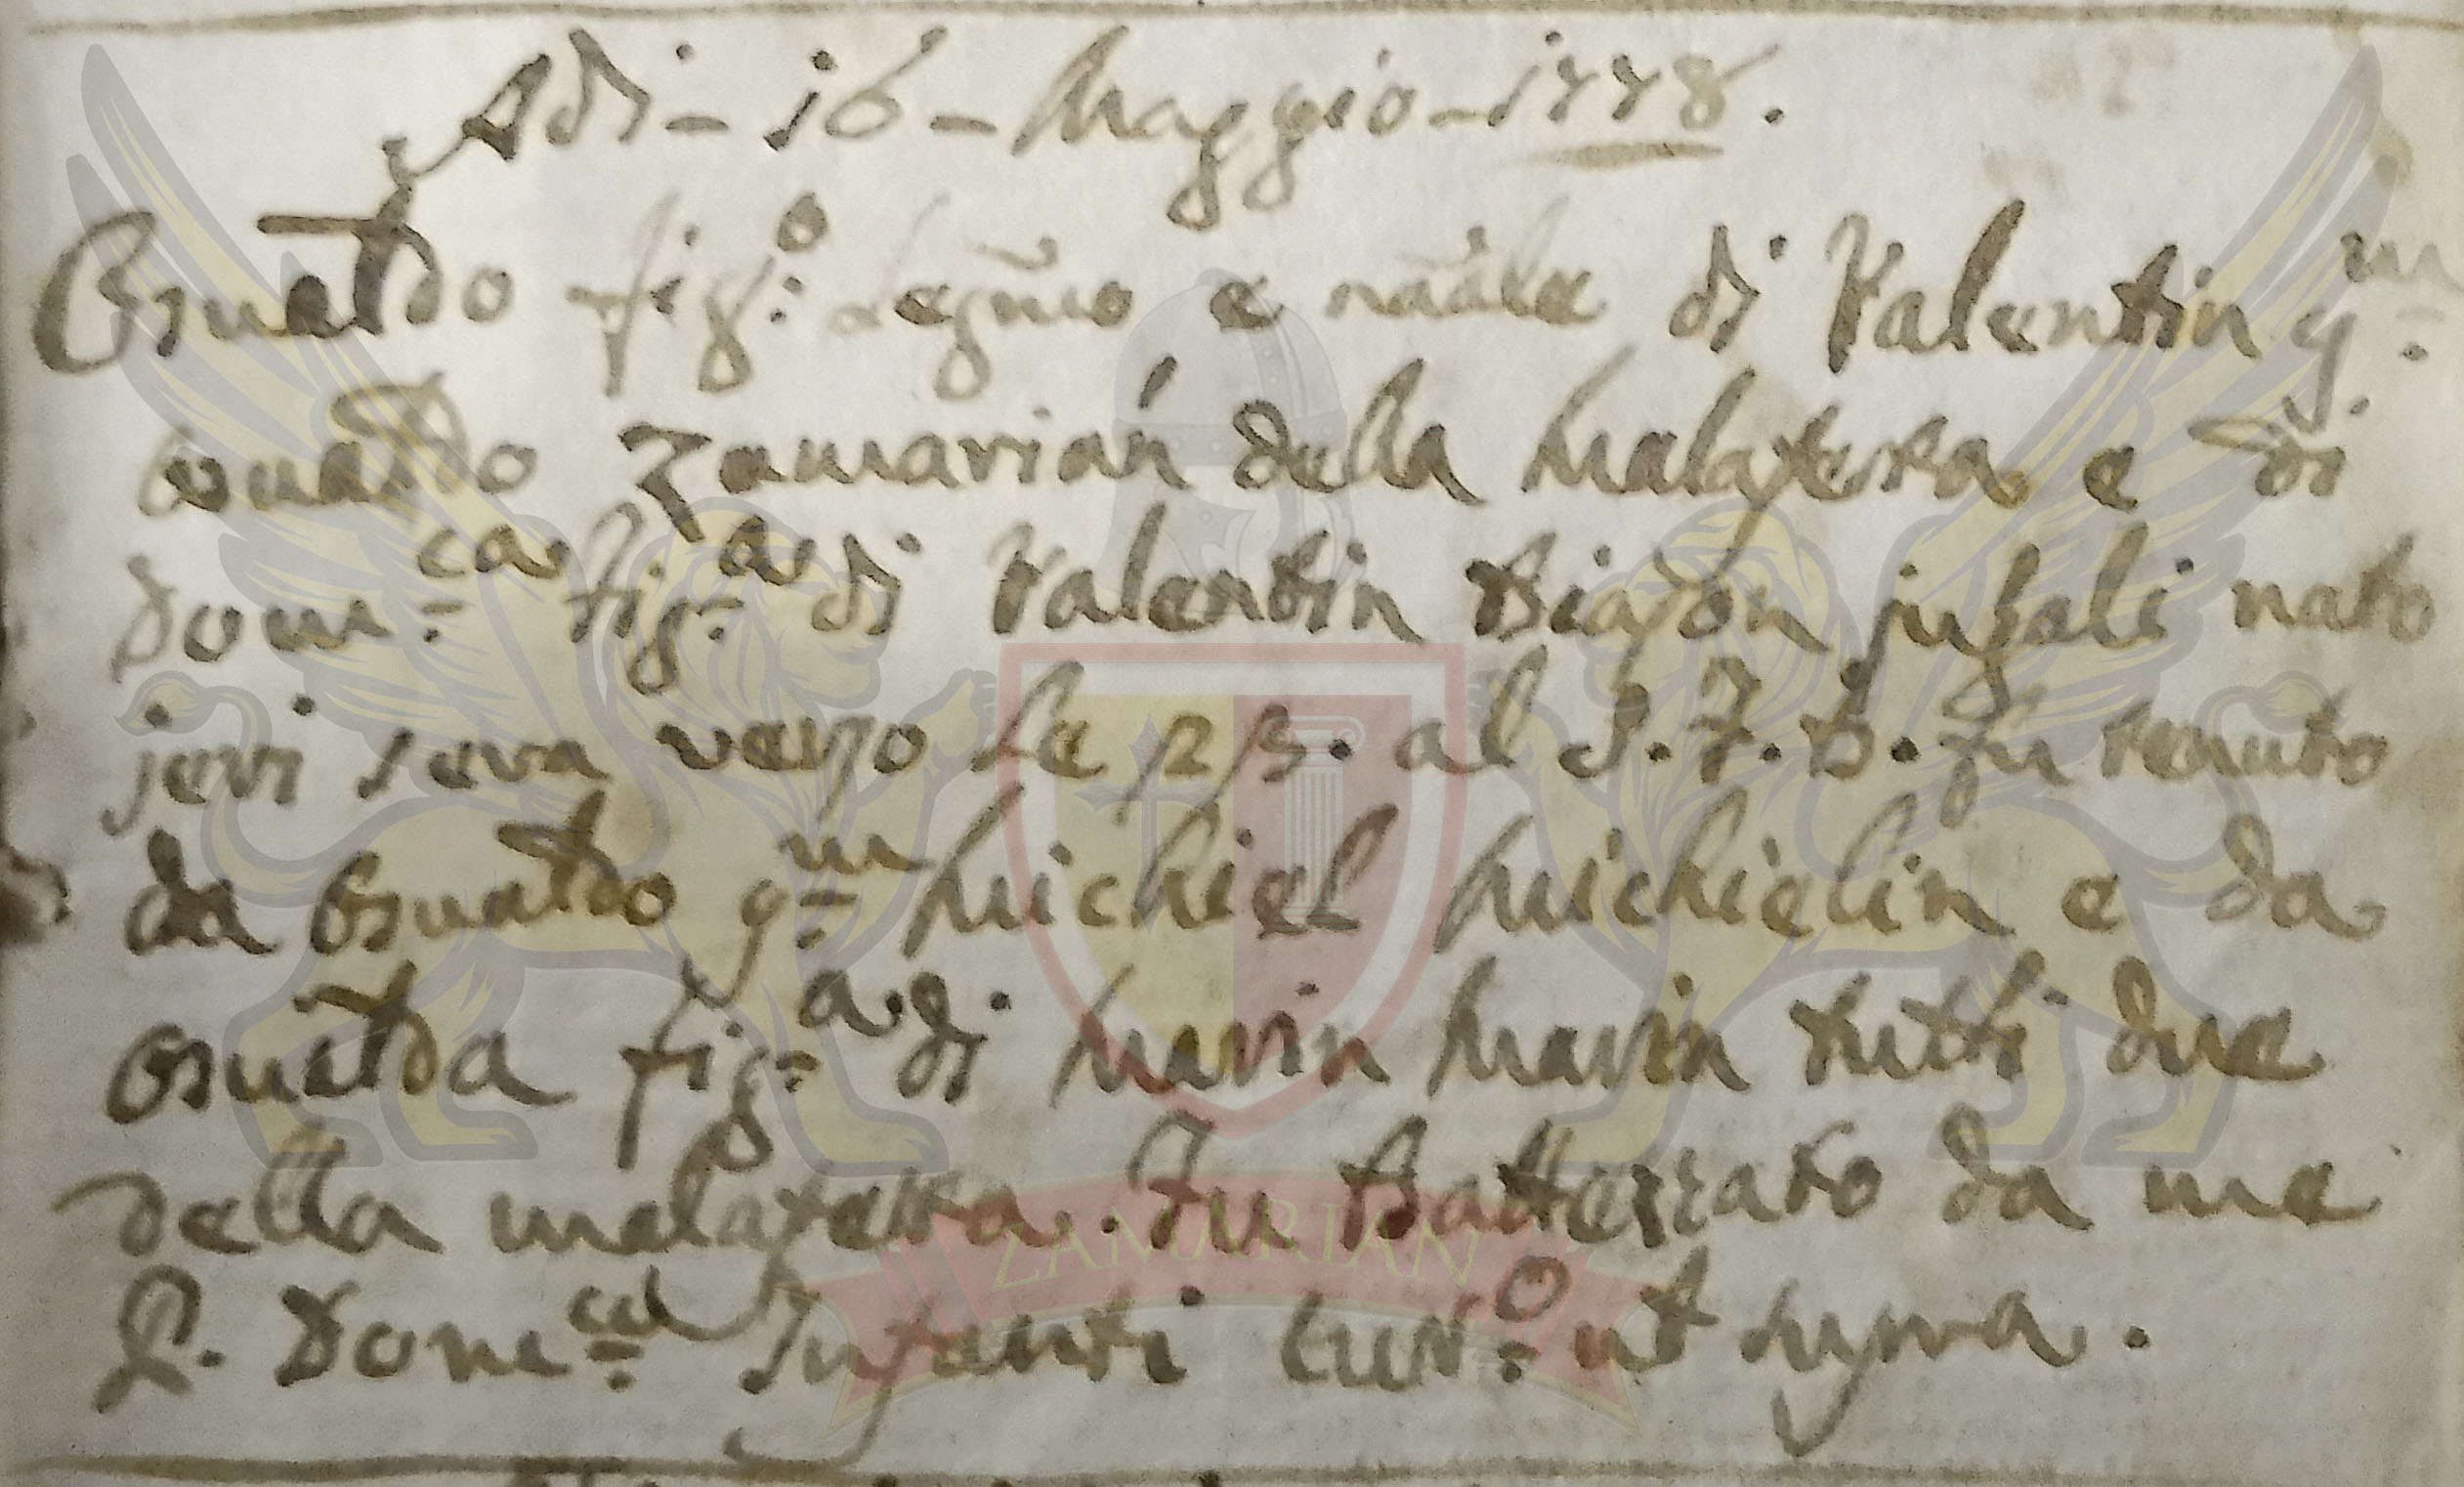 Adi - 16 - Maggio - 1778.
Osualdo fig:o Legmo e nãle di Valentin qm:
Osualdo Zamarian della Malafesta e di
Dom:ca fig:a di Valentin Biason jugali nato
jeri sera verso le 2/3. al S. F. B. Fu tenuto
da Osualdo qm: Michiel Michielin e da
Osualda fig:a di Marin Marin tutti due
della malafesta. Fu Battezzato da me
P. Dome:co Infanti Cur:o ut supra.
ZAMARIAN